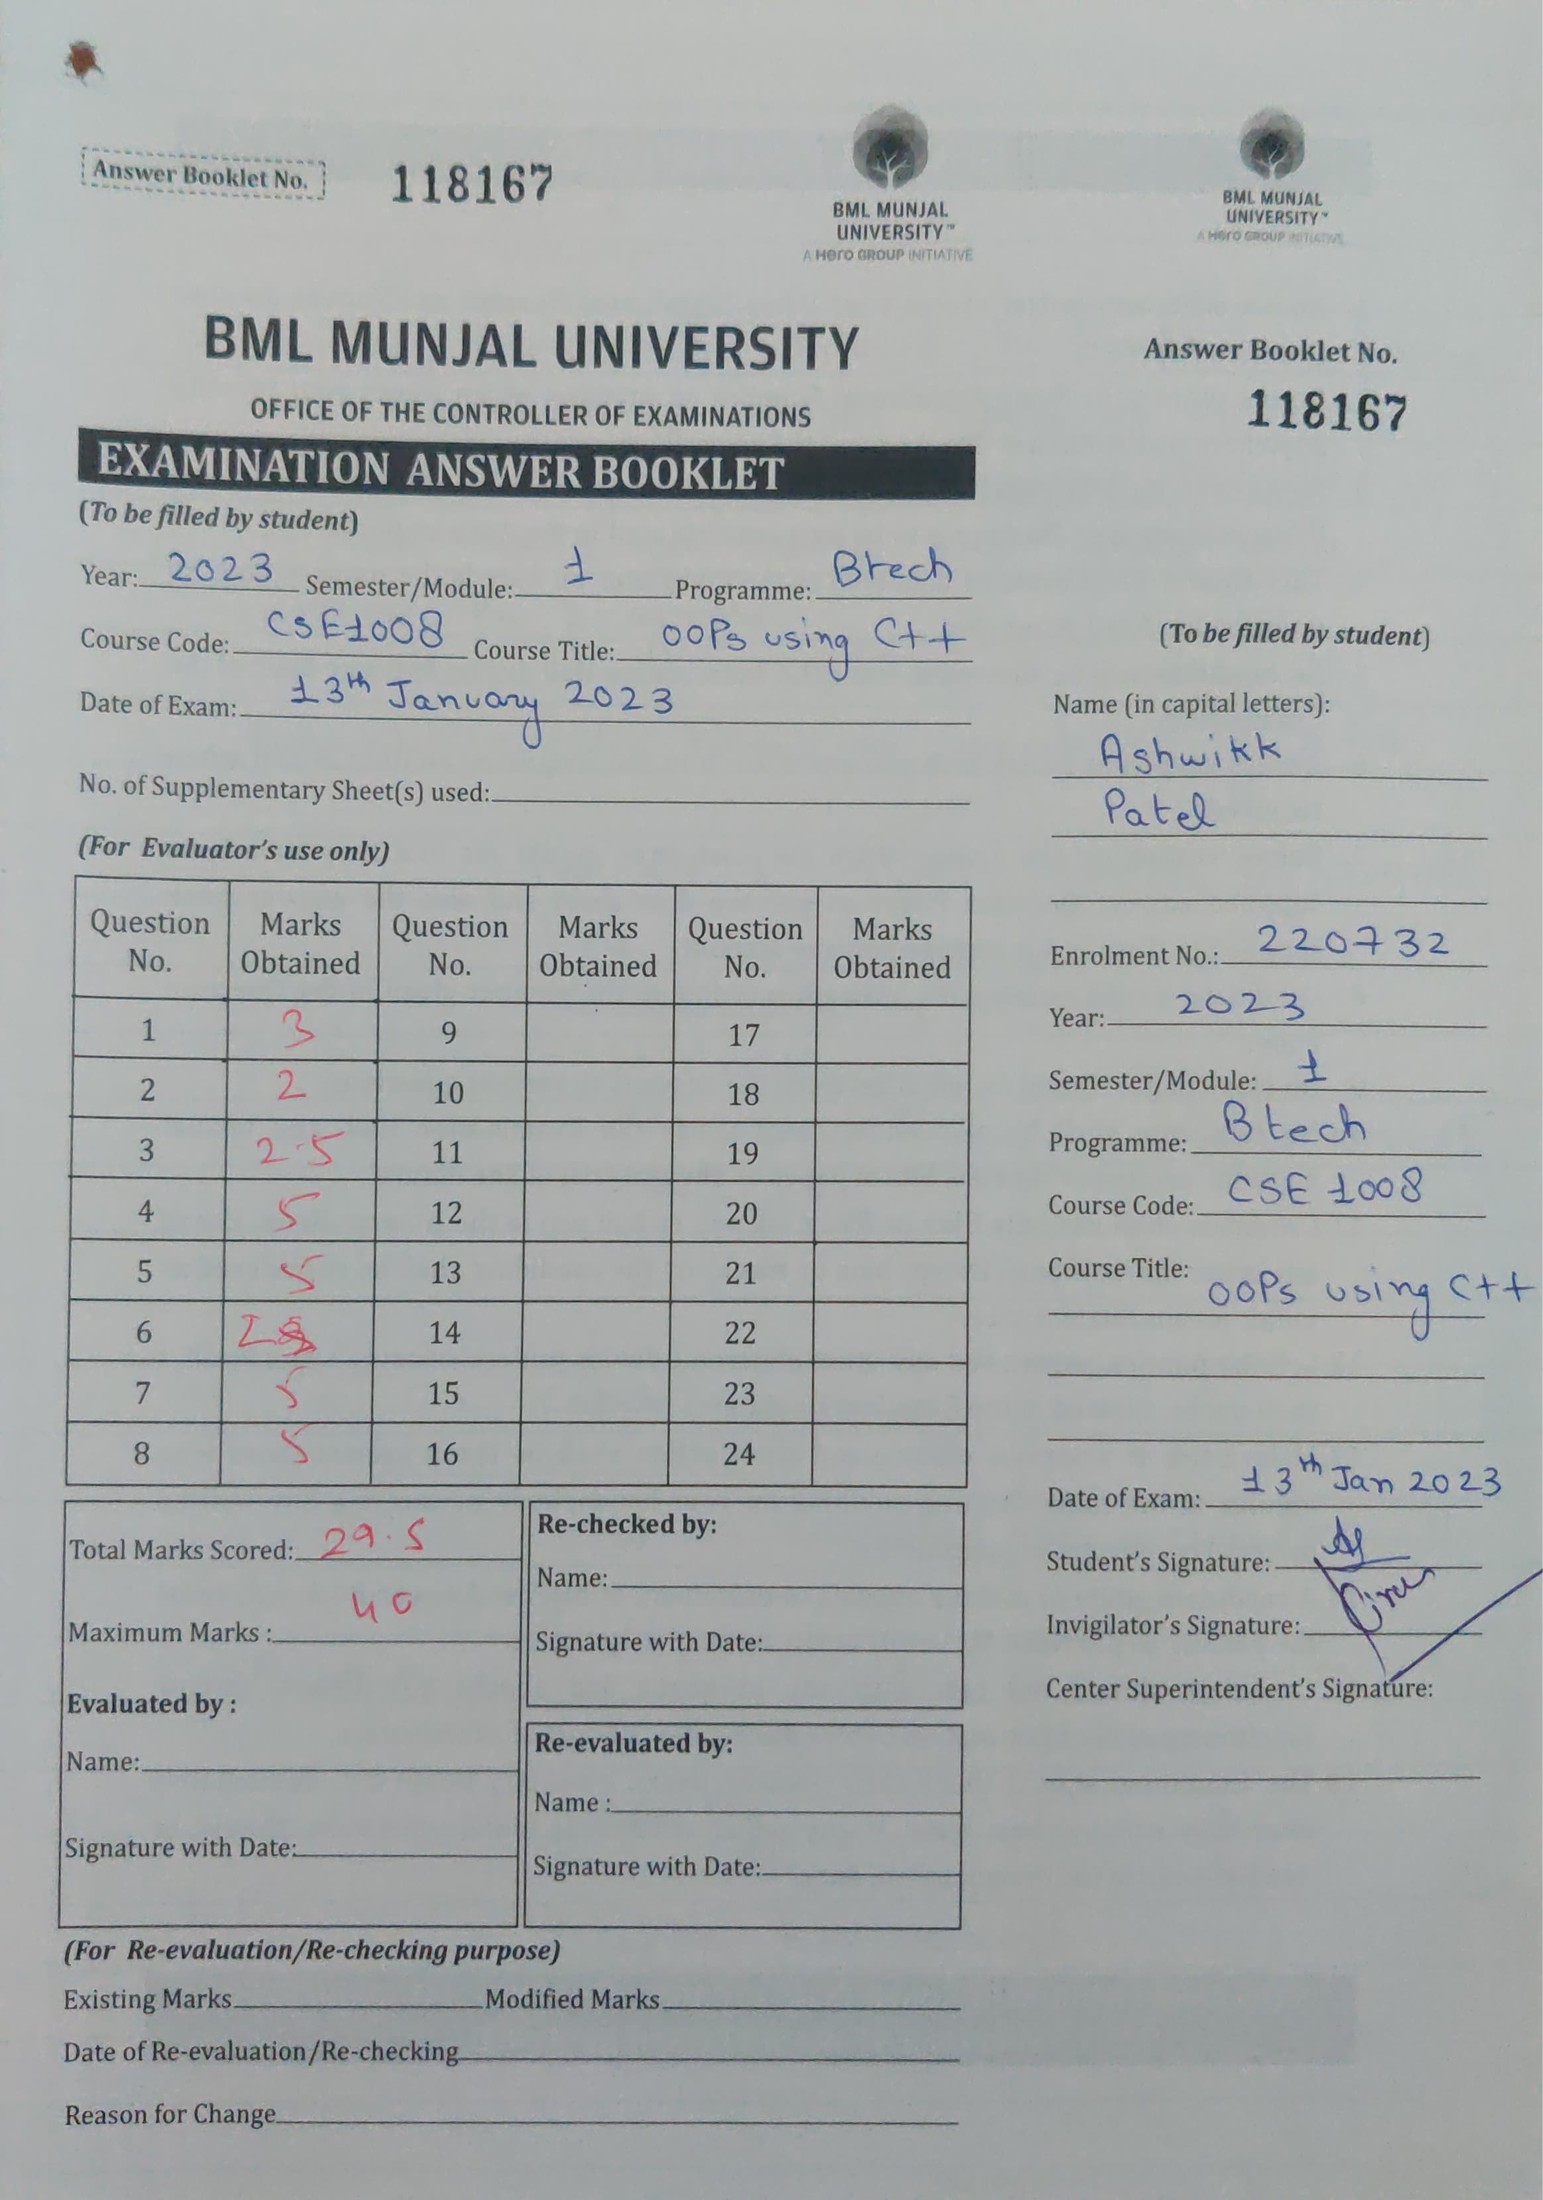 Answer Booklet No. 118167
BML MUNJAL
UNIVERSITY™
A Hero GROUP INITIATIVE
BML MUNJAL UNIVERSITY
OFFICE OF THE CONTROLLER OF EXAMINATIONS
EXAMINATION ANSWER BOOKLET
(To be filled by student)
Year: 2023 Semester/Module: 1 Programme: Btech
Course Code: CSE1008 Course Title: OOPs using C++
Date of Exam: 13th January 2023
No. of Supplementary Sheet(s) used:
(For Evaluator's use only)
Question No. Marks Obtained Question No. Marks Obtained Question No. Marks Obtained
1 3 9 17
2 2 10 18
3 2.5 11 19
4 5 12 20
5 5 13 21
6 14 22
7 5 15 23
8 5 16 24
Total Marks Scored: 29.5
Maximum Marks : 40
Evaluated by :
Name:
Signature with Date:
Re-checked by:
Name:
Signature with Date:
Re-evaluated by:
Name :
Signature with Date:
(For Re-evaluation/Re-checking purpose)
Existing Marks Modified Marks
Date of Re-evaluation/Re-checking
Reason for Change
BML MUNJAL
UNIVERSITY™
A Hero GROUP INITIATIVE
Answer Booklet No.
118167
(To be filled by student)
Name (in capital letters):
Ashwikk
Patel
Enrolment No.: 220732
Year: 2023
Semester/Module: 1
Programme: Btech
Course Code: CSE 1008
Course Title:
OOPs using C++
Date of Exam: 13th Jan 2023
Student's Signature:
Invigilator's Signature:
Center Superintendent's Signature: